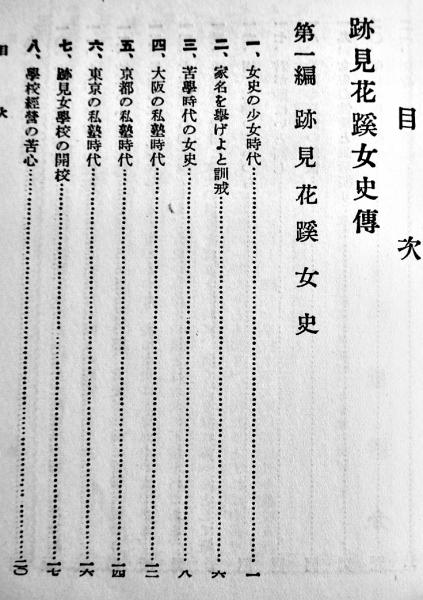 目次
跡見花蹊女史傳
第一編 跡見花蹊女史
一、女史の少女時代……一
二、家名を擧げよと訓戒……六
三、苦學時代の女史……八
四、大阪の私塾時代……一二
五、京都の私塾時代……一四
六、東京の私塾時代……一六
七、跡見女學校の開校……一七
八、學校經營の苦心……二〇
目次